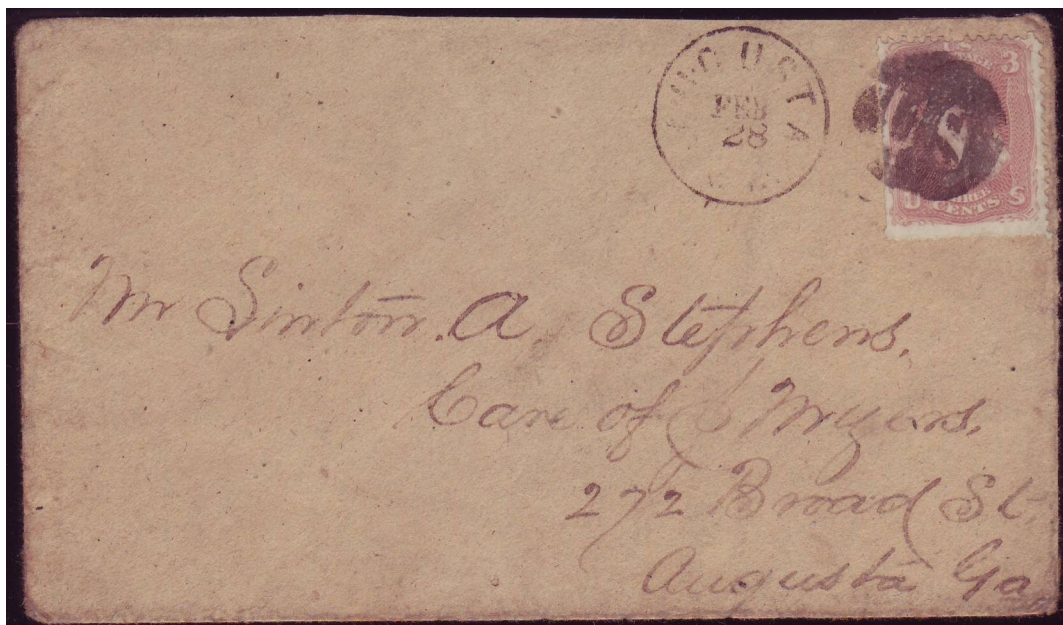 AUGUSTA
FEB
28
3
U S
THREE
CENTS
Mr Sinton. A. Stephens,
Care of Myers,
272 Broad St.
Augusta Ga